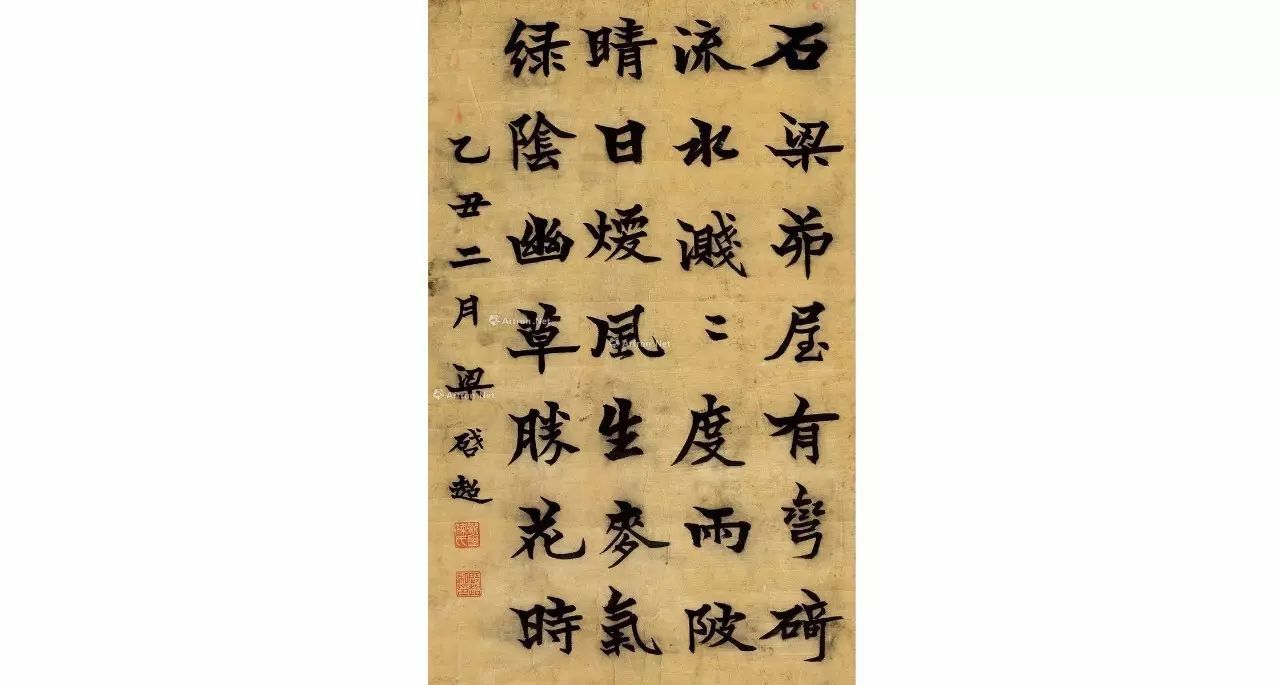 石梁茆屋有彎碕
流水濺〻度兩陂
晴日煖風生麥氣
绿陰幽草勝花時
乙丑二月梁啟超
Artron.Net
Artron.Net
Artron.Net